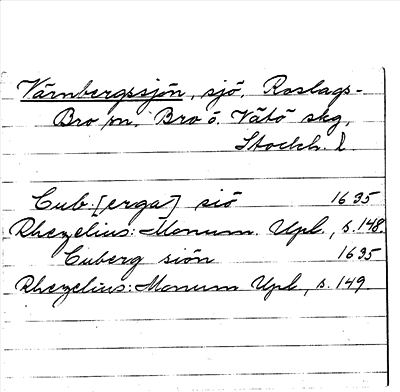 Värnbergssjön, sjö, Roslags-
Bro sn. Bro o. Vätö skg,
Stockh. l.
Cub.[erga] siö 1635
Rhezelius: Monum. Upl., s. 148.
Cuberg siön 1635
Rhezelius: Monum Upl, s. 149.